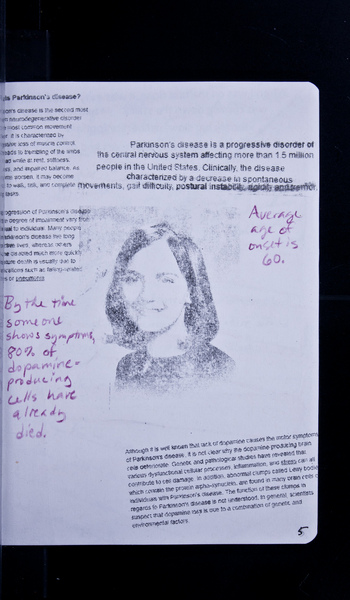 is Parkinson's disease?
son's disease is the second most
neurodegenerative disorder
most common movement
It is characterized by
loss of muscle control,
leads to trembling of the limbs
while at rest, stiffness,
and impaired balance. As
worsen, it may become
to walk, talk, and complete
tasks.
Parkinson's disease is a progressive disorder of
the central nervous system affecting more than 1.5 million
people in the United States. Clinically, the disease
characterized by a decrease in spontaneous
movements, gait difficulty, postural instability, rigidity and tremor.
progression of Parkinson's disease
degree of impairment vary from
to individual. Many people
Parkinson's disease live long
lives, whereas others
disabled much more quickly.
death is usually due to
such as falling-related
or pneumonia.
Average
age of
onset is
60.
By the time
someone
shows symptoms,
80% of
dopamine-
producing
cells have
already
died.
Although it is well known that lack of dopamine causes the motor symptoms
of Parkinson's disease, it is not clear why the dopamine-producing brain
cells deteriorate. Genetic and pathological studies have revealed that
various dysfunctional cellular processes, inflammation, and stress can all
contribute to cell damage. In addition, abnormal clumps called Lewy bodies,
which contain the protein alpha-synuclein, are found in many brain cells of
individuals with Parkinson's disease. The function of these clumps in
regards to Parkinson's disease is not understood. In general, scientists
suspect that dopamine loss is due to a combination of genetic and
environmental factors.
5